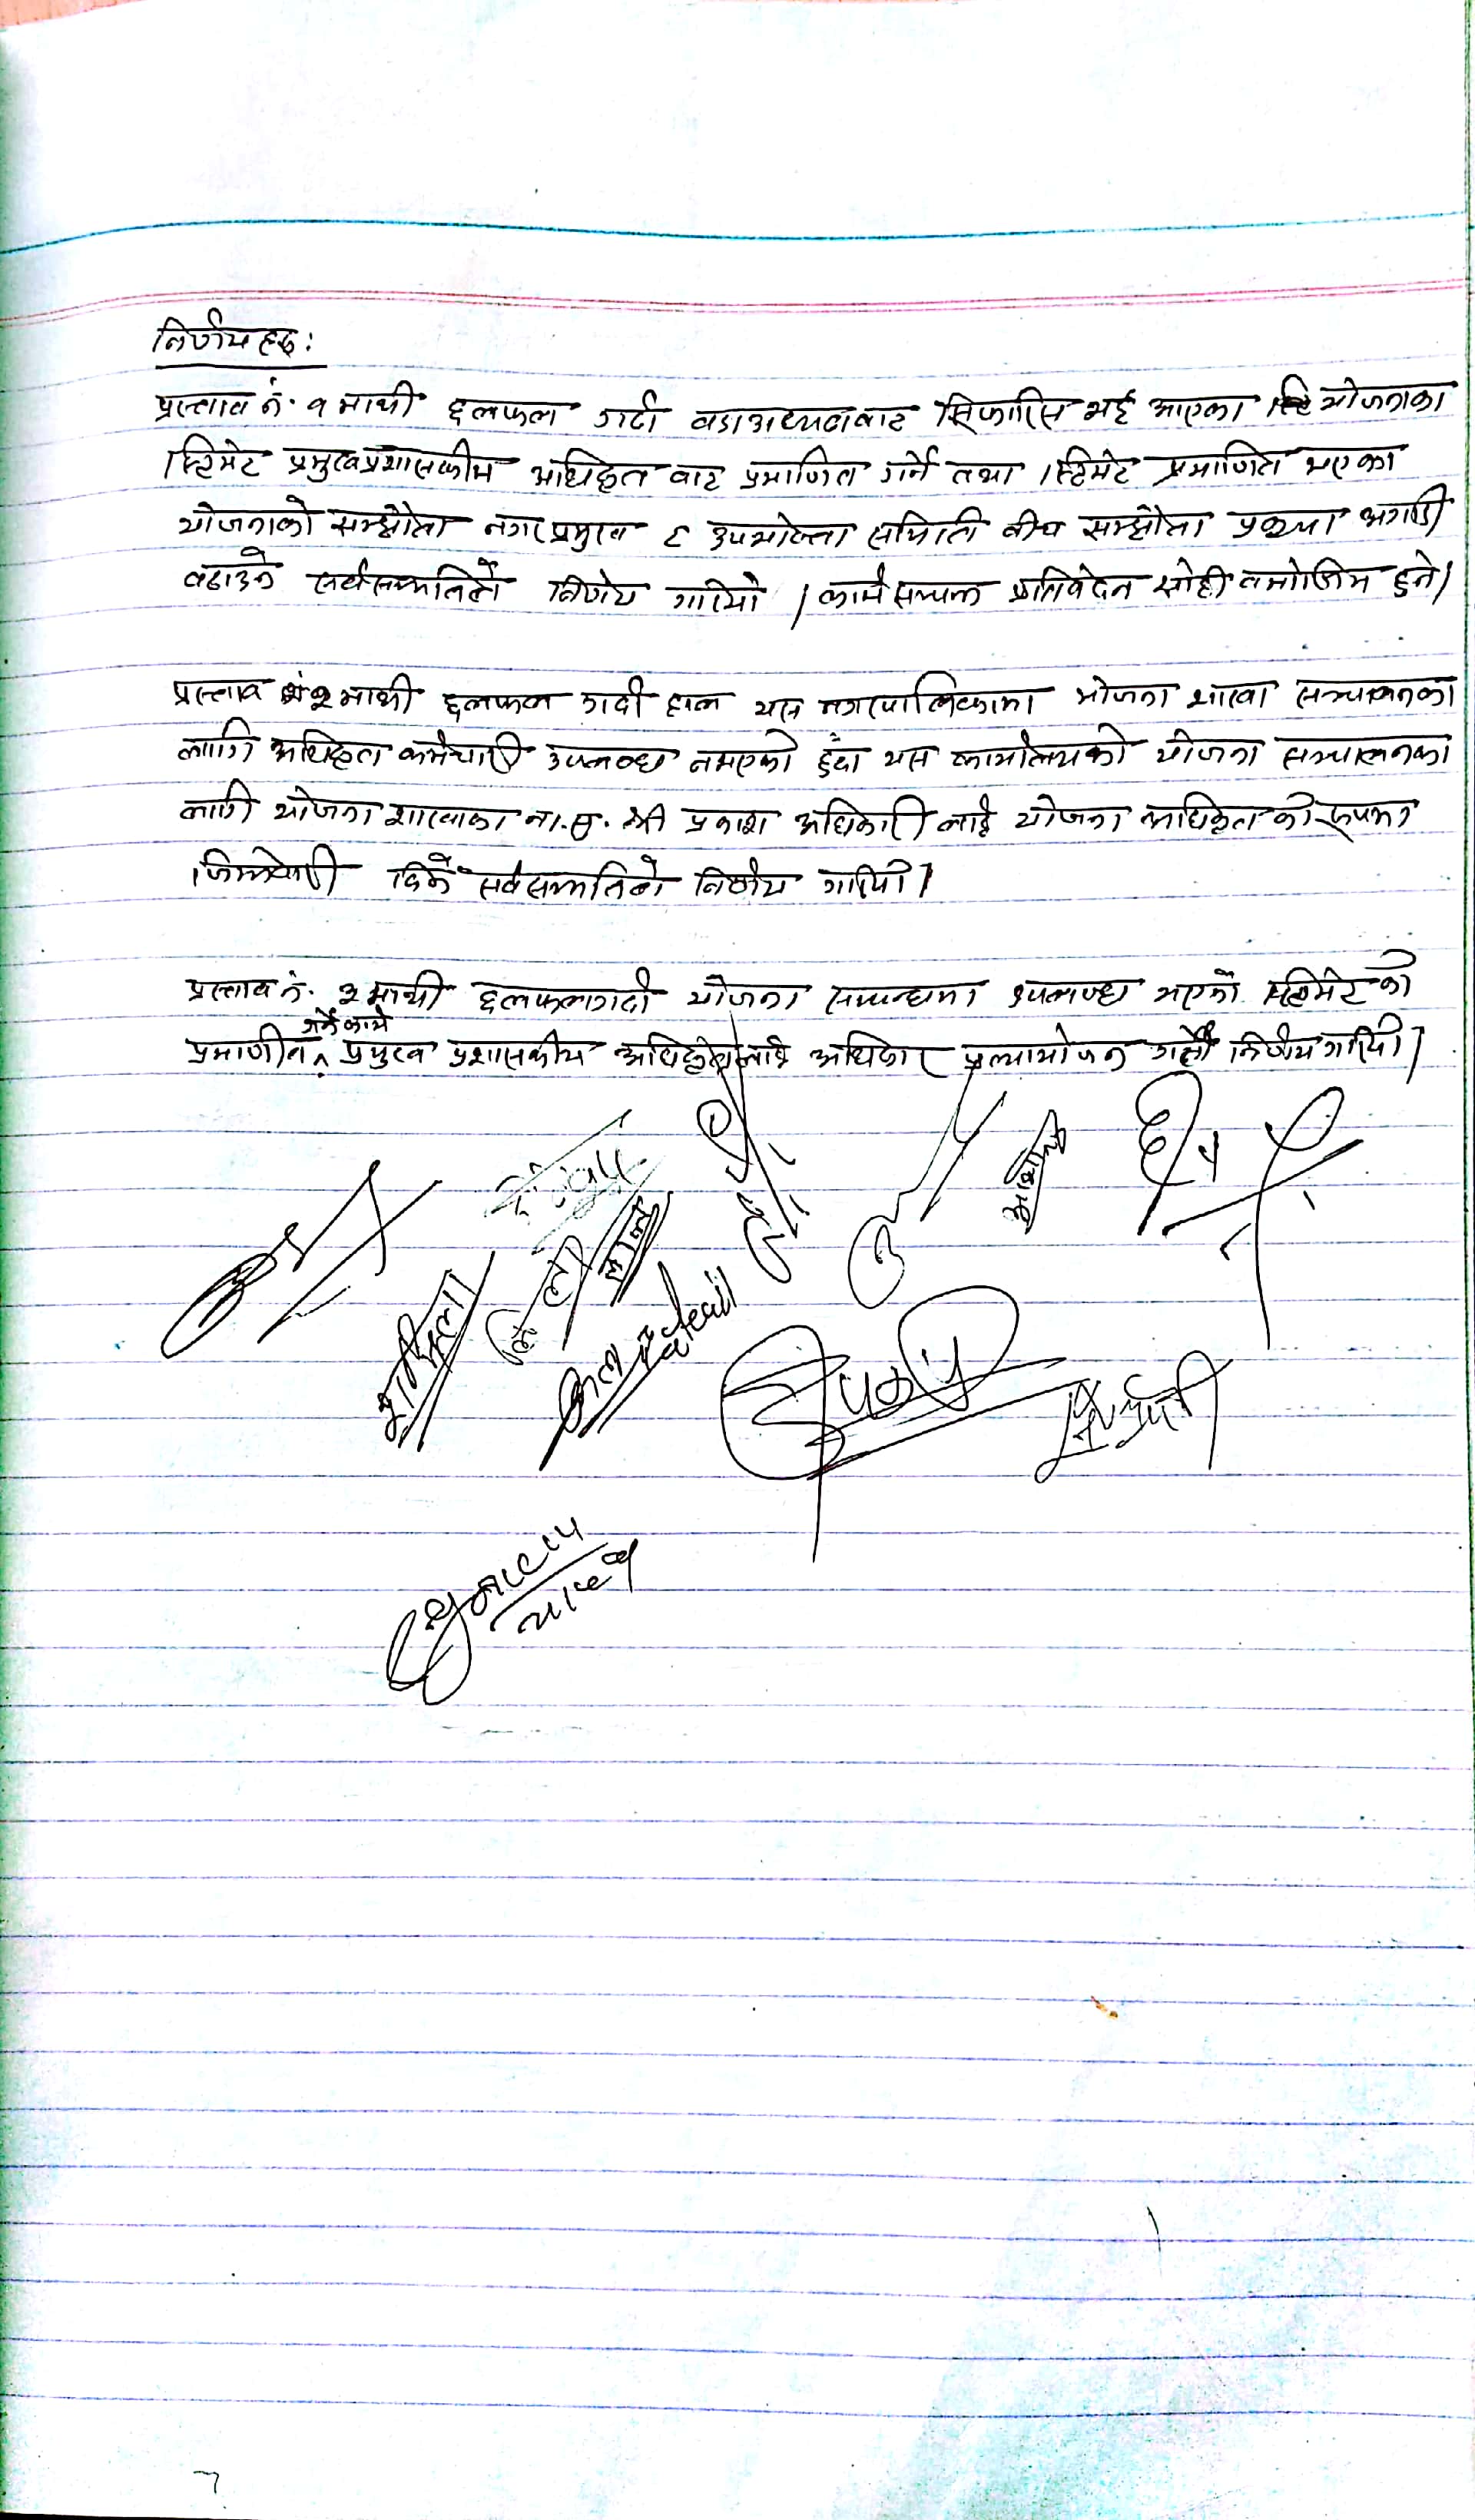 निर्णयहरु:
प्रस्ताव नं. १ माथी छलफल गर्दा वडा अध्यक्षबाट सिफारिस भई आएका योजनाका
स्टिमेट प्रमुख प्रशासकीय अधिकृत बाट प्रमाणित गर्ने तथा स्टिमेट प्रमाणित भएका
योजनाको सम्झौता नगर प्रमुख र उपभोक्ता समिति बीच सम्झौता प्रकृया अगाडी
बढाउने सर्वसम्मतिले निर्णय गरियो । कार्य सम्पन्न प्रतिवेदन सोही बमोजिम हुने ।
प्रस्ताव नं २ माथी छलफल गर्दा हाल यस नगरपालिकामा योजना शाखा सञ्चालनका
लागि अधिकृत कर्मचारी उपलब्ध नभएको हुँदा यस कार्यालयको योजना सञ्चालनका
लागी योजना शाखाका ना.सु. श्री प्रकाश अधिकारी लाई योजना अधिकृत को रूपमा
जिम्मेवारी दिने सर्वसम्मतिले निर्णय गरियो ।
प्रस्ताव नं. ३ माथी छलफल गर्दा योजना सम्बन्धमा उपलब्ध भएको स्टिमेट को
प्रमाणीत गर्ने कार्य प्रमुख प्रशासकीय अधिकृतलाई अधिकार प्रत्यायोजन गर्ने निर्णय गरियो ।